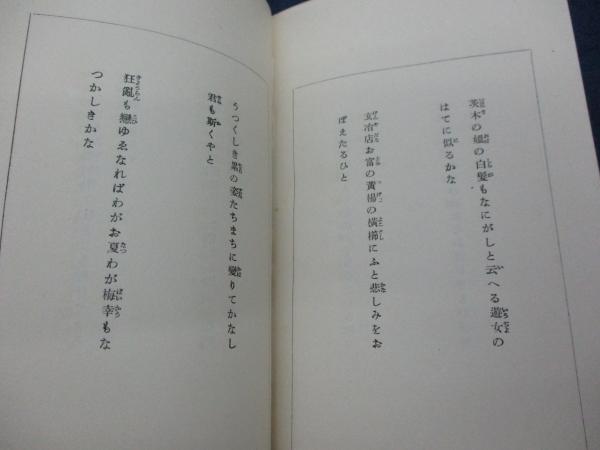 茨木の媼の白髪もなにがしと云へる遊女の
はてに似るかな
玄冶店お富の黄楊の横櫛にふと悲しみをお
ぼえたるひと
うつくしき累の姿たちまちに變りてかなし
君も斯くやと
狂亂も戀ゆゑなればわがお夏わが梅幸もな
つかしきかな